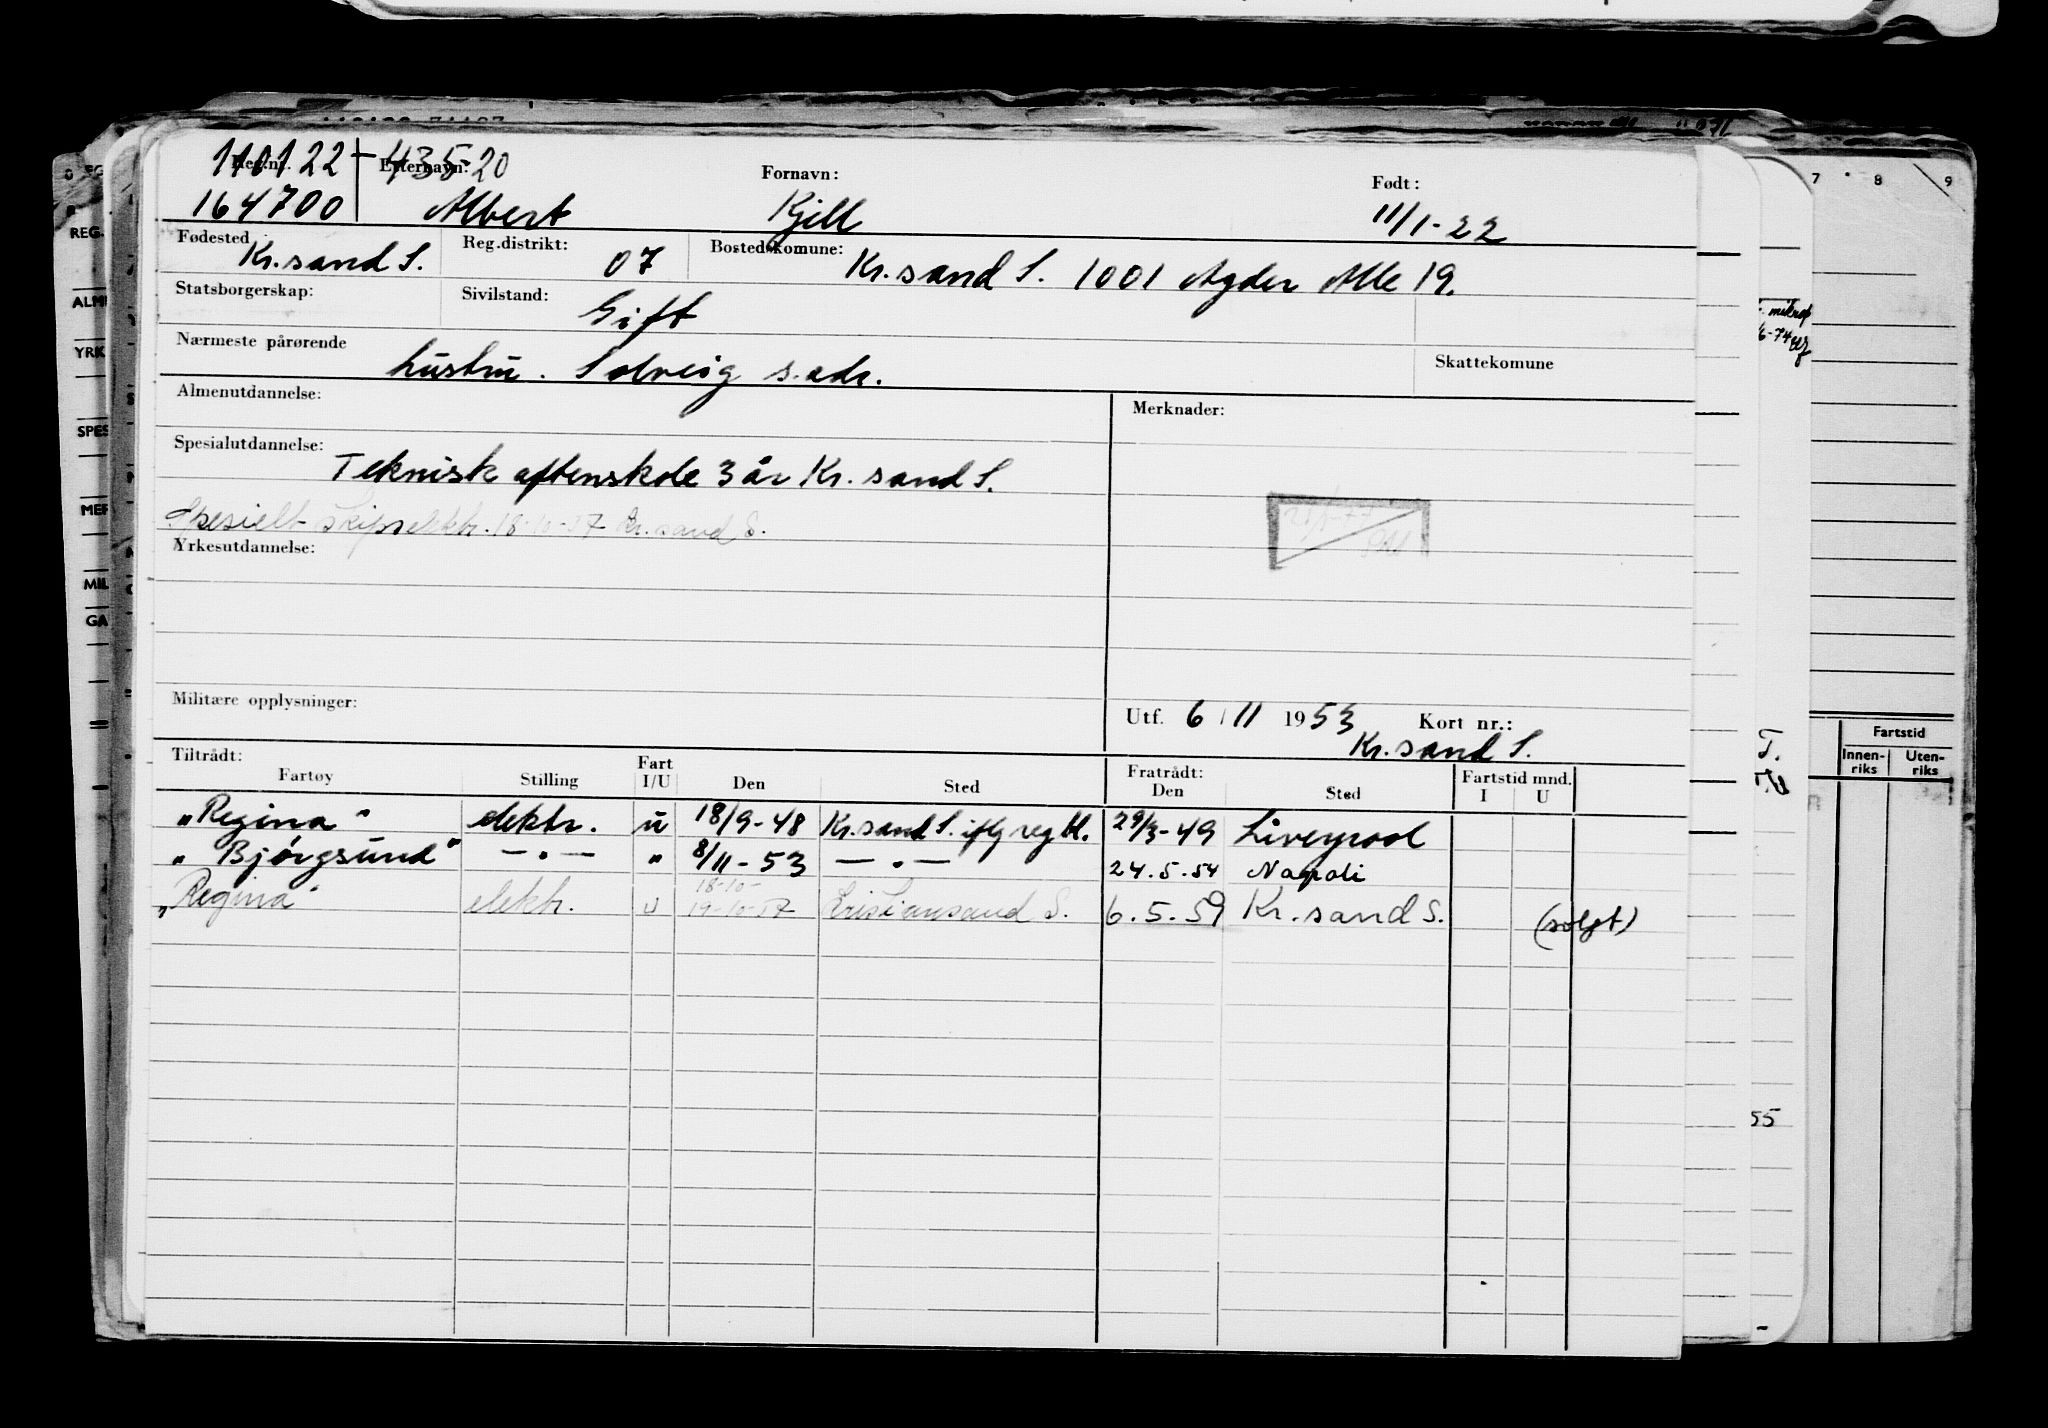 110122-43520
Reg.nr. Etternavn: Fornavn: Født:
164700 Albert Kjell 11/1-22
Fødested Reg.distrikt: Bostedskomune:
Kr.sand S. 07 Kr.sand S. 1001 Agder Alle 19.
Statsborgerskap: Sivilstand:
Gift
Nærmeste pårørende Skattekomune
hustru. Solveig s.adr.
Almenutdannelse: Merknader:
Spesialutdannelse:
Teknisk aftenskole 3 år Kr.sand S.
Spesielt skipselektr. 18-10-57 Kr.sand S.
Yrkesutdannelse:
Militære opplysninger:
Utf. 6/11 1953 Kort nr.:
Kr.sand S.
Tiltrådt: Fratrådt:
Fartøy Stilling Fart I/U Den Sted Den Sted Fartstid mnd. I U
"Regina" elektr. u 18/9-48 Kr.sand S. iflg reg bl. 29/3-49 Liverpool
"Bjørgsund" — " — " 8/11-53 — " — 24.5.54 Napoli
18-10-
"Regina" elektr. u 19-10-57 Kristiansand S. 6.5.59 Kr.sand S. (solgt)
REG.
ALME
YRK
SPES
MER
MIL
GA
7 8 9
mikrof
Fartstid
Innen-riks Uten-riks
T.
55